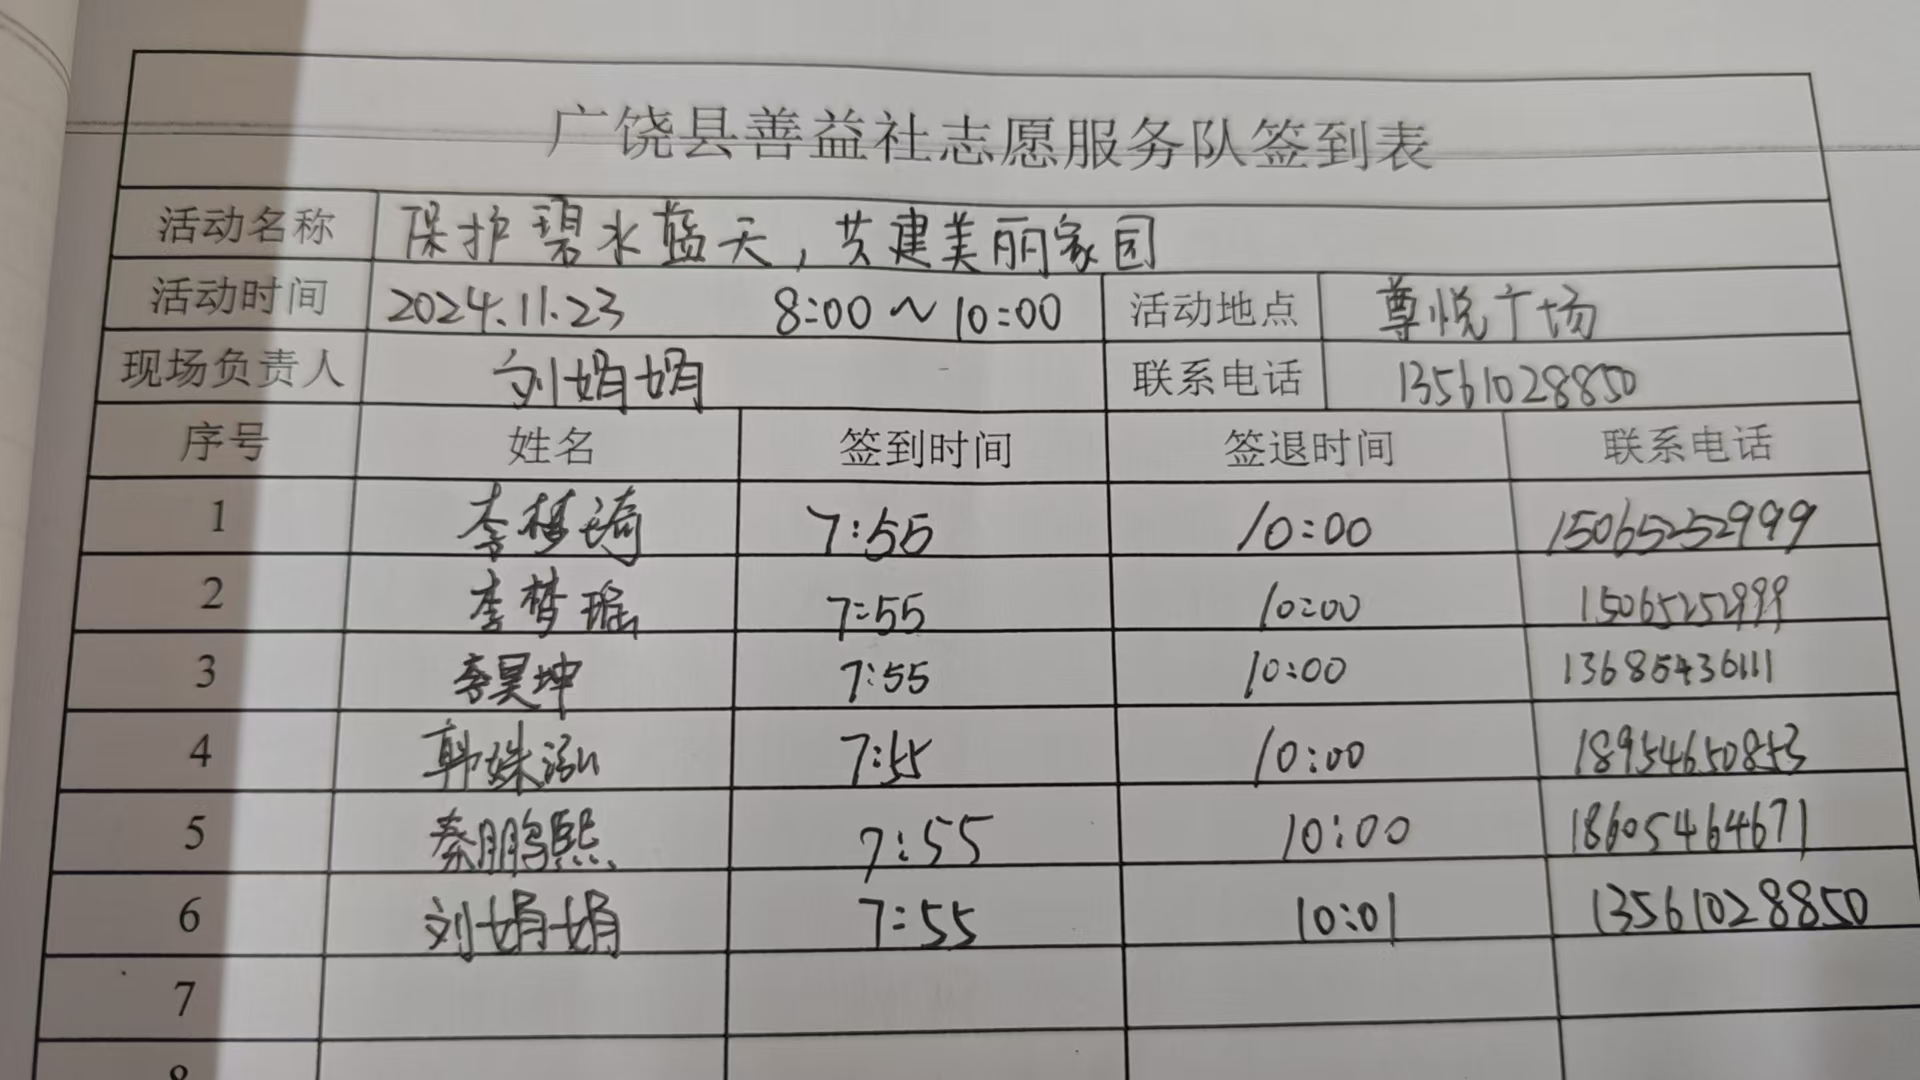 广饶县善益社志愿服务队签到表
活动名称 保护碧水蓝天，共建美丽家园
活动时间 2024.11.23 8:00～10:00 活动地点 尊悦广场
现场负责人 刘娟娟 联系电话 13561028850
序号 姓名 签到时间 签退时间 联系电话
1 李梦琦 7:55 10:00 15065252999
2 李梦瑶 7:55 10:00 15065252999
3 李昊坤 7:55 10:00 13685436111
4 韩姝泓 7:55 10:00 18954650853
5 秦鹏熙 7:55 10:00 18605464671
6 刘娟娟 7:55 10:01 13561028850
7
8